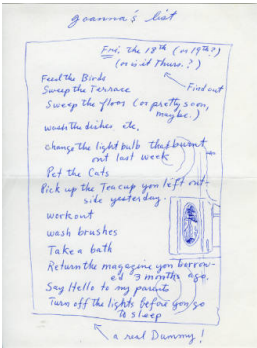 Joanna's list
Fri. the 18th (or 19th?)
(or is it Thurs.?)
Feed the Birds
Find out
Sweep the Terrace
Sweep the floor (or pretty soon,
maybe.)
wash the dishes etc.
change the light bulb that burnt
out last week
Pet the Cats
Pick up the Teacup you left out-
side yesterday.
workout
wash brushes
Take a bath
Return the magazine you borrow-
ed 3 months ago.
Say Hello to my parents
Turn off the lights before you go
to sleep
a real Dummy!